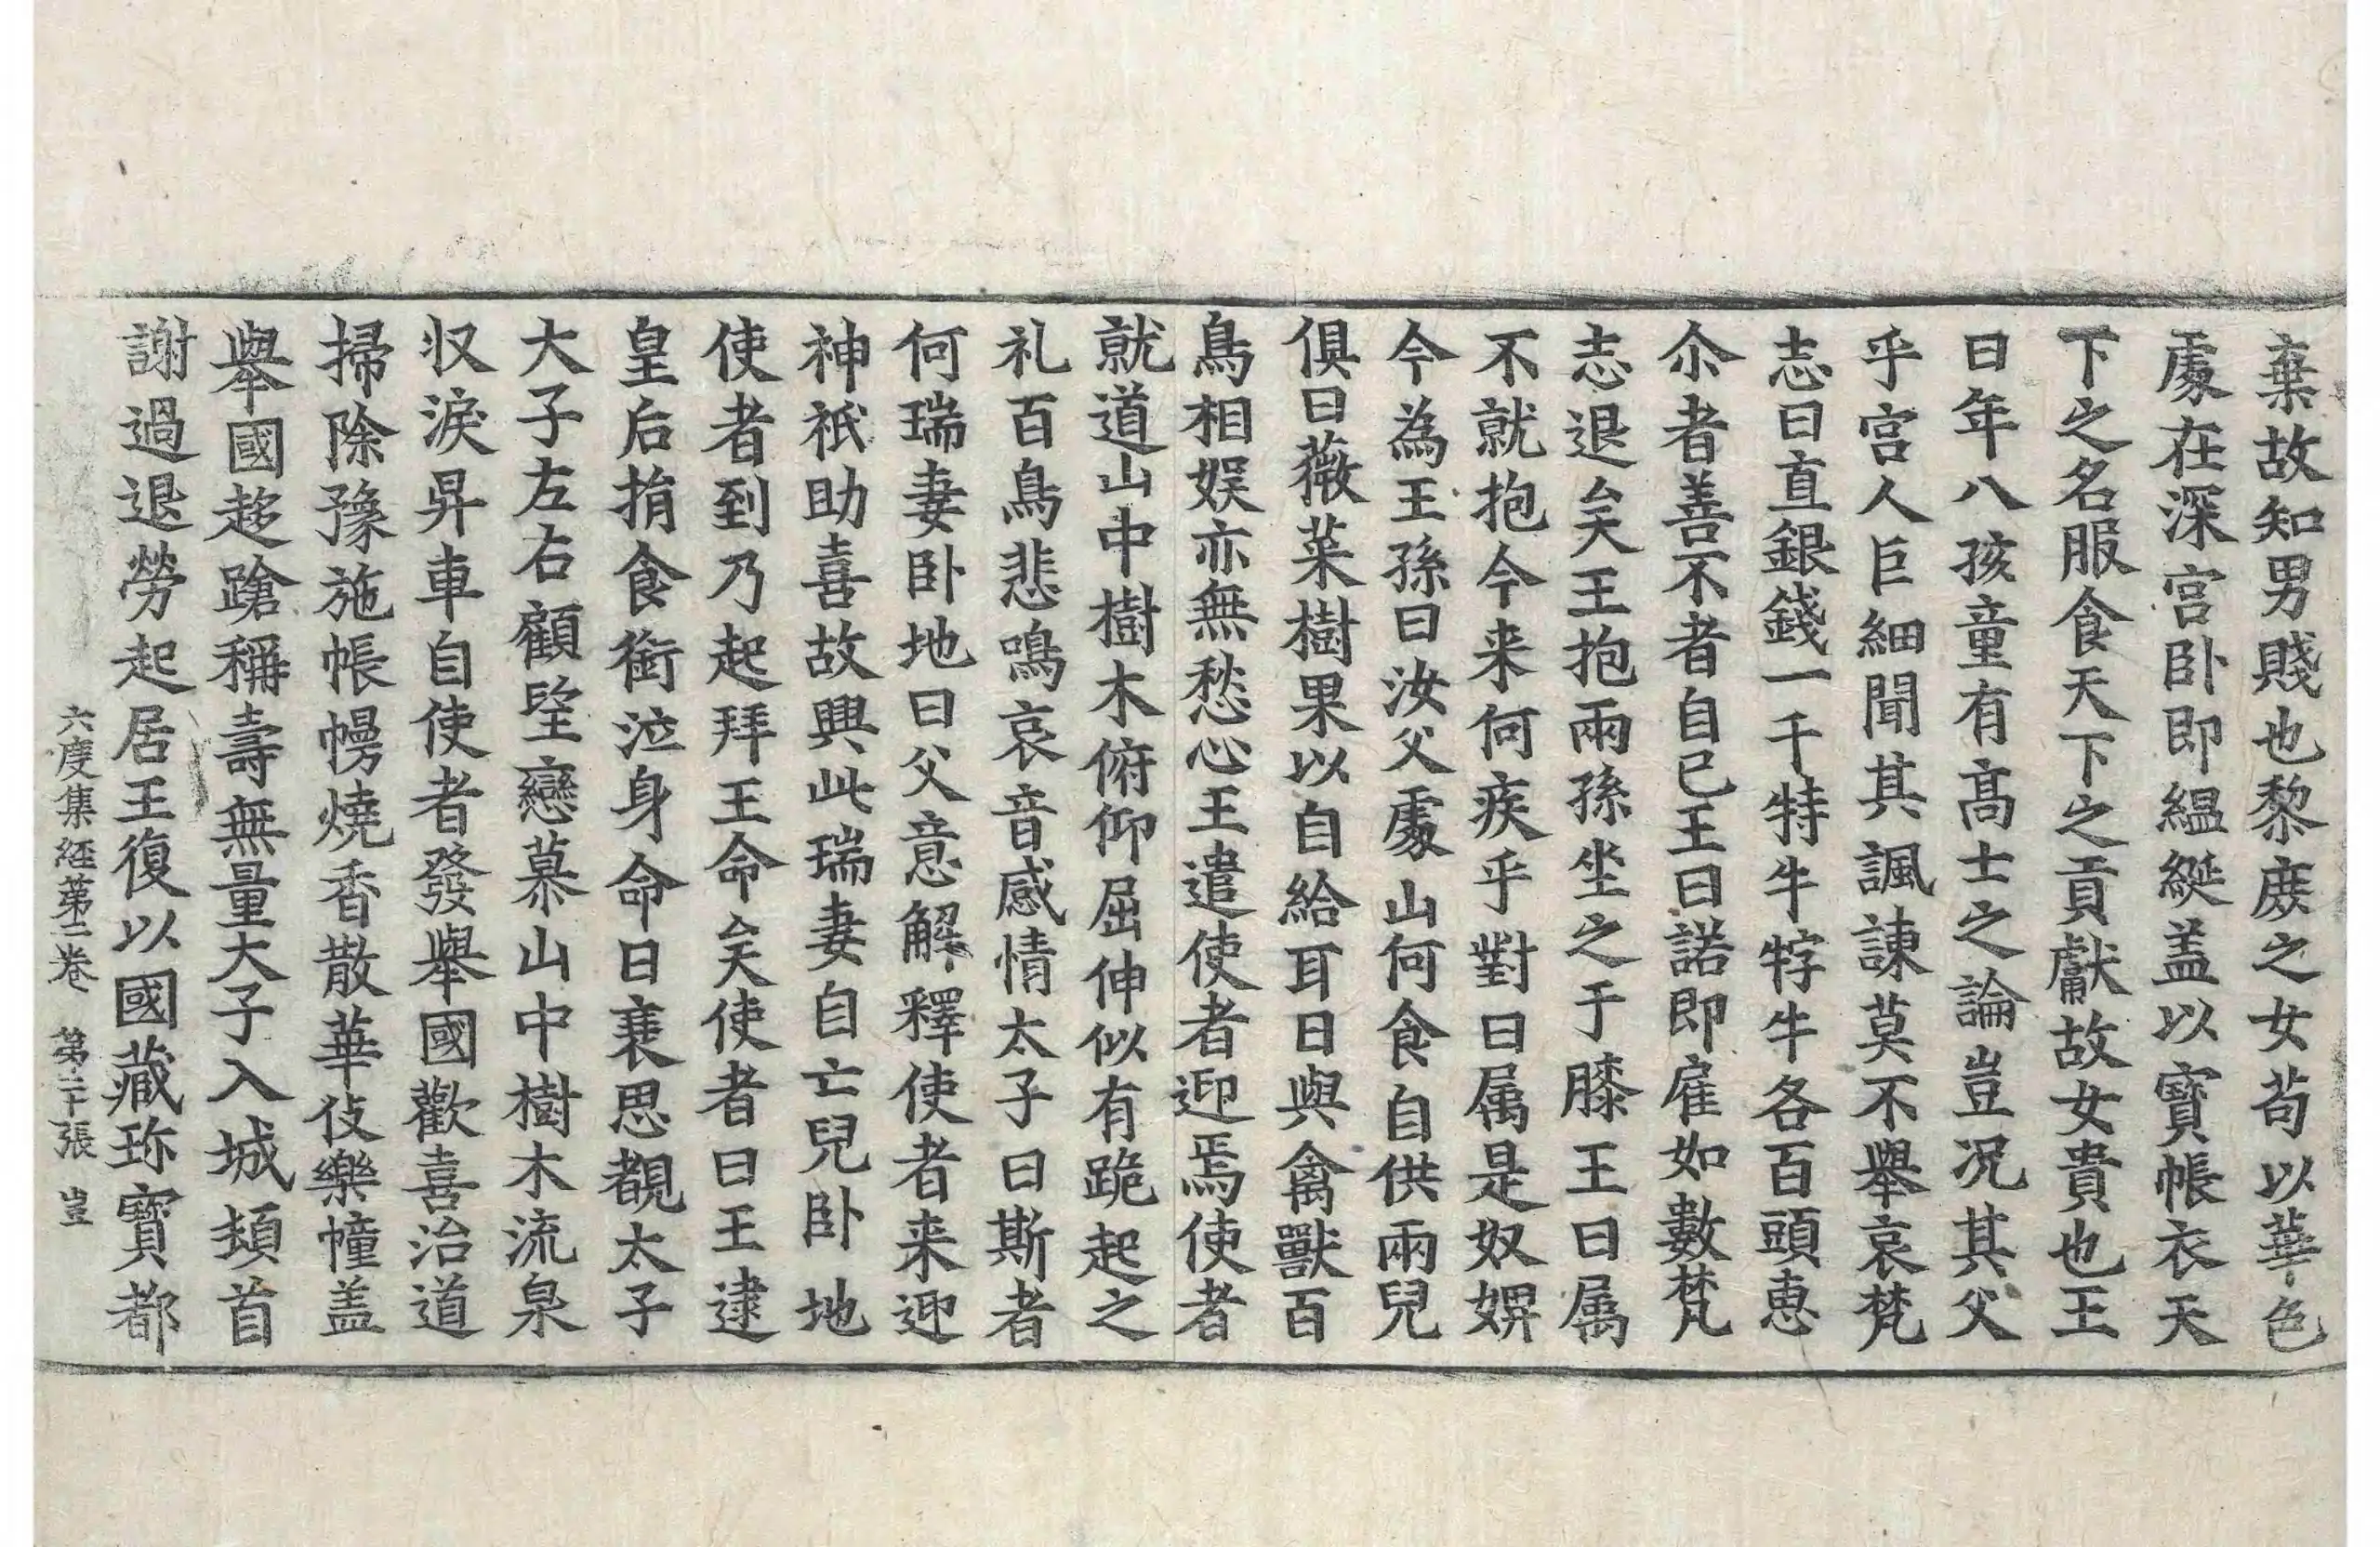 棄故知男賤也黎庶之女苟以華色
處在深宮卧即縕綖盖以寳帳衣天
下之名服食天下之貢獻故女貴也王
曰年八孩童有高士之論豈况其父
乎宮人巨細聞其諷諫莫不舉哀梵
志曰直銀錢一千特牛牸牛各百頭恵
尒者善不者自已王曰諾即雇如數梵
志退矣王抱兩孫坐之于膝王曰属
不就抱今来何疾乎對曰属是奴婢
今為王孫曰汝父處山何食自供兩兒
俱曰薇菜樹果以自給耳日與禽獸百
鳥相娱亦無愁心王遣使者迎焉使者
就道山中樹木俯仰屈伸似有跪起之
礼百鳥悲鳴哀音感情太子曰斯者
何瑞妻卧地曰父意解釋使者来迎
神祇助喜故興此瑞妻自亡兒卧地
使者到乃起拜王命矣使者曰王逮
皇后捐食銜泣身命日衰思覩太子
大子左右顧望戀慕山中樹木流泉
収淚昇車自使者發舉國歡喜治道
掃除豫施帳幔燒香散華伎樂幢盖
舉國趍蹌稱壽無量大子入城頓首
謝過退勞起居王復以國藏珎寳都
六度集経第二卷　第二十張　豈